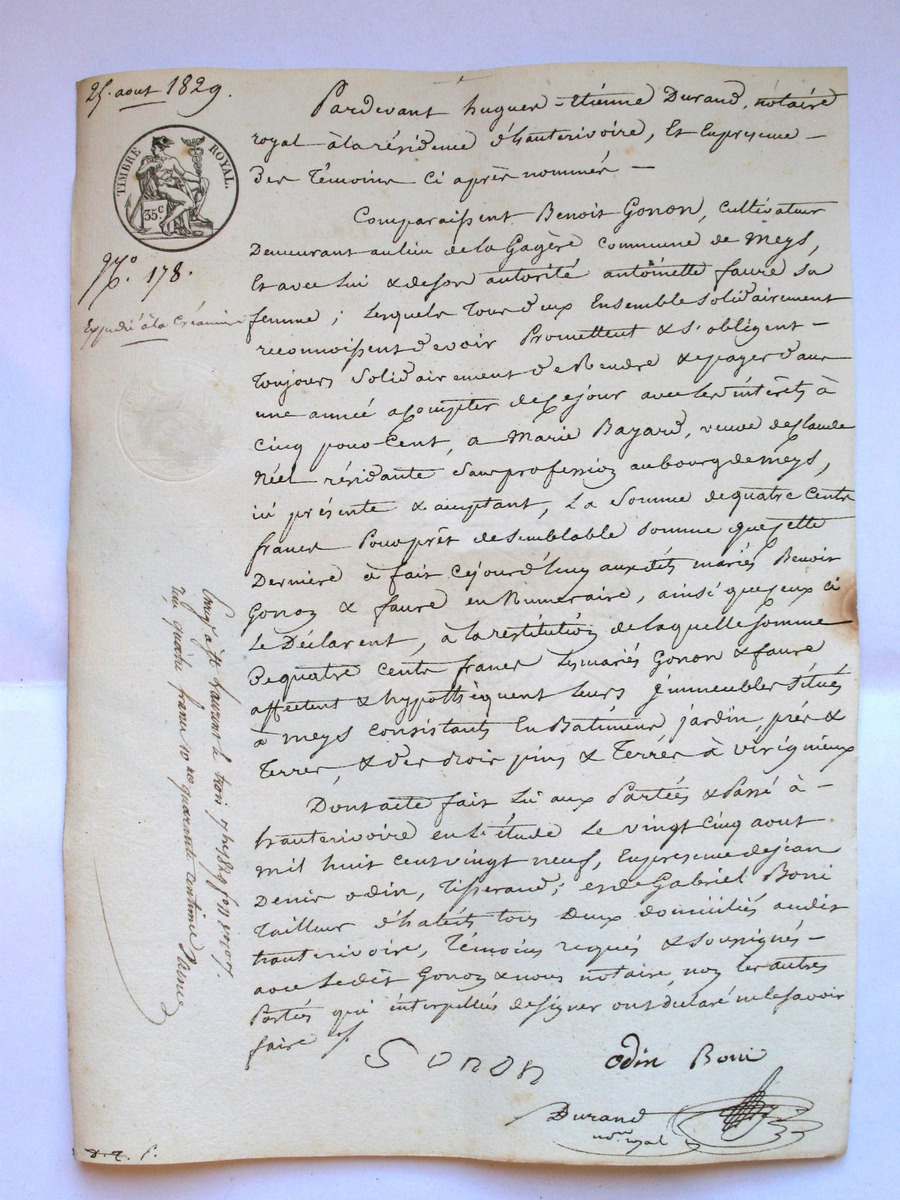 25. aout 1829.
TIMBRE ROYAL.
35c
No. 178.
Expédié à la Créancière
Pardevant hugues-étienne Durand, notaire
royal à la résidence d'hauterivoire, Et Enpresence
Des Témoins ci après nommés
Comparaissent Benoit Gonon, cultivateur
Demeurant au lieu de la Gagère commune de Meys,
Et avec lui & de son autorité antoinette faure sa
femme; lesquels Tous deux Ensemble solidairement
reconnoissent devoir Promettent & s'obligent
Toujours solidairement de Rendre & payer dans
une année a compter de ce jour avec les intérêts à
cinq pour cent, a Marie Bayard, veuve de claude
Néel résidante sans profession au bourg de meys,
ici présente & acceptant, La Somme de quatre cents
francs Pour prêt de semblable somme que cette
Dernière à fait cejourd'huy auxdits mariés Benoit
Gonon & faure en Numeraire, ainsi que ceux ci
Le Déclarent, à la restitution de laquelle somme
De quatre cents francs les mariés Gonon & faure
affectent & hypothèquent leurs immeubles situés
à meys consistants En Batiments, jardin, prés &
Terres, & des bois pins & Terres à virigneux
Dont acte fait lu aux Parties & Passé à
hauterivoire en l'étude Le vingt cinq aout
mil huit cent vingt neuf, En presence de jean
Denis odin, Tisserand; et de Gabriel Boni
Tailleur d'habits tous Deux domiciliés audit
hauterivoire, Témoins requis & soussignés
avec Ledit Gonon & nous notaire, non les autres
Parties qui interpellées de signer ont déclaré ne le savoir
faire
Gonon
odin Boni
Durand
nre royal
reçu quatre francs quarante centimes